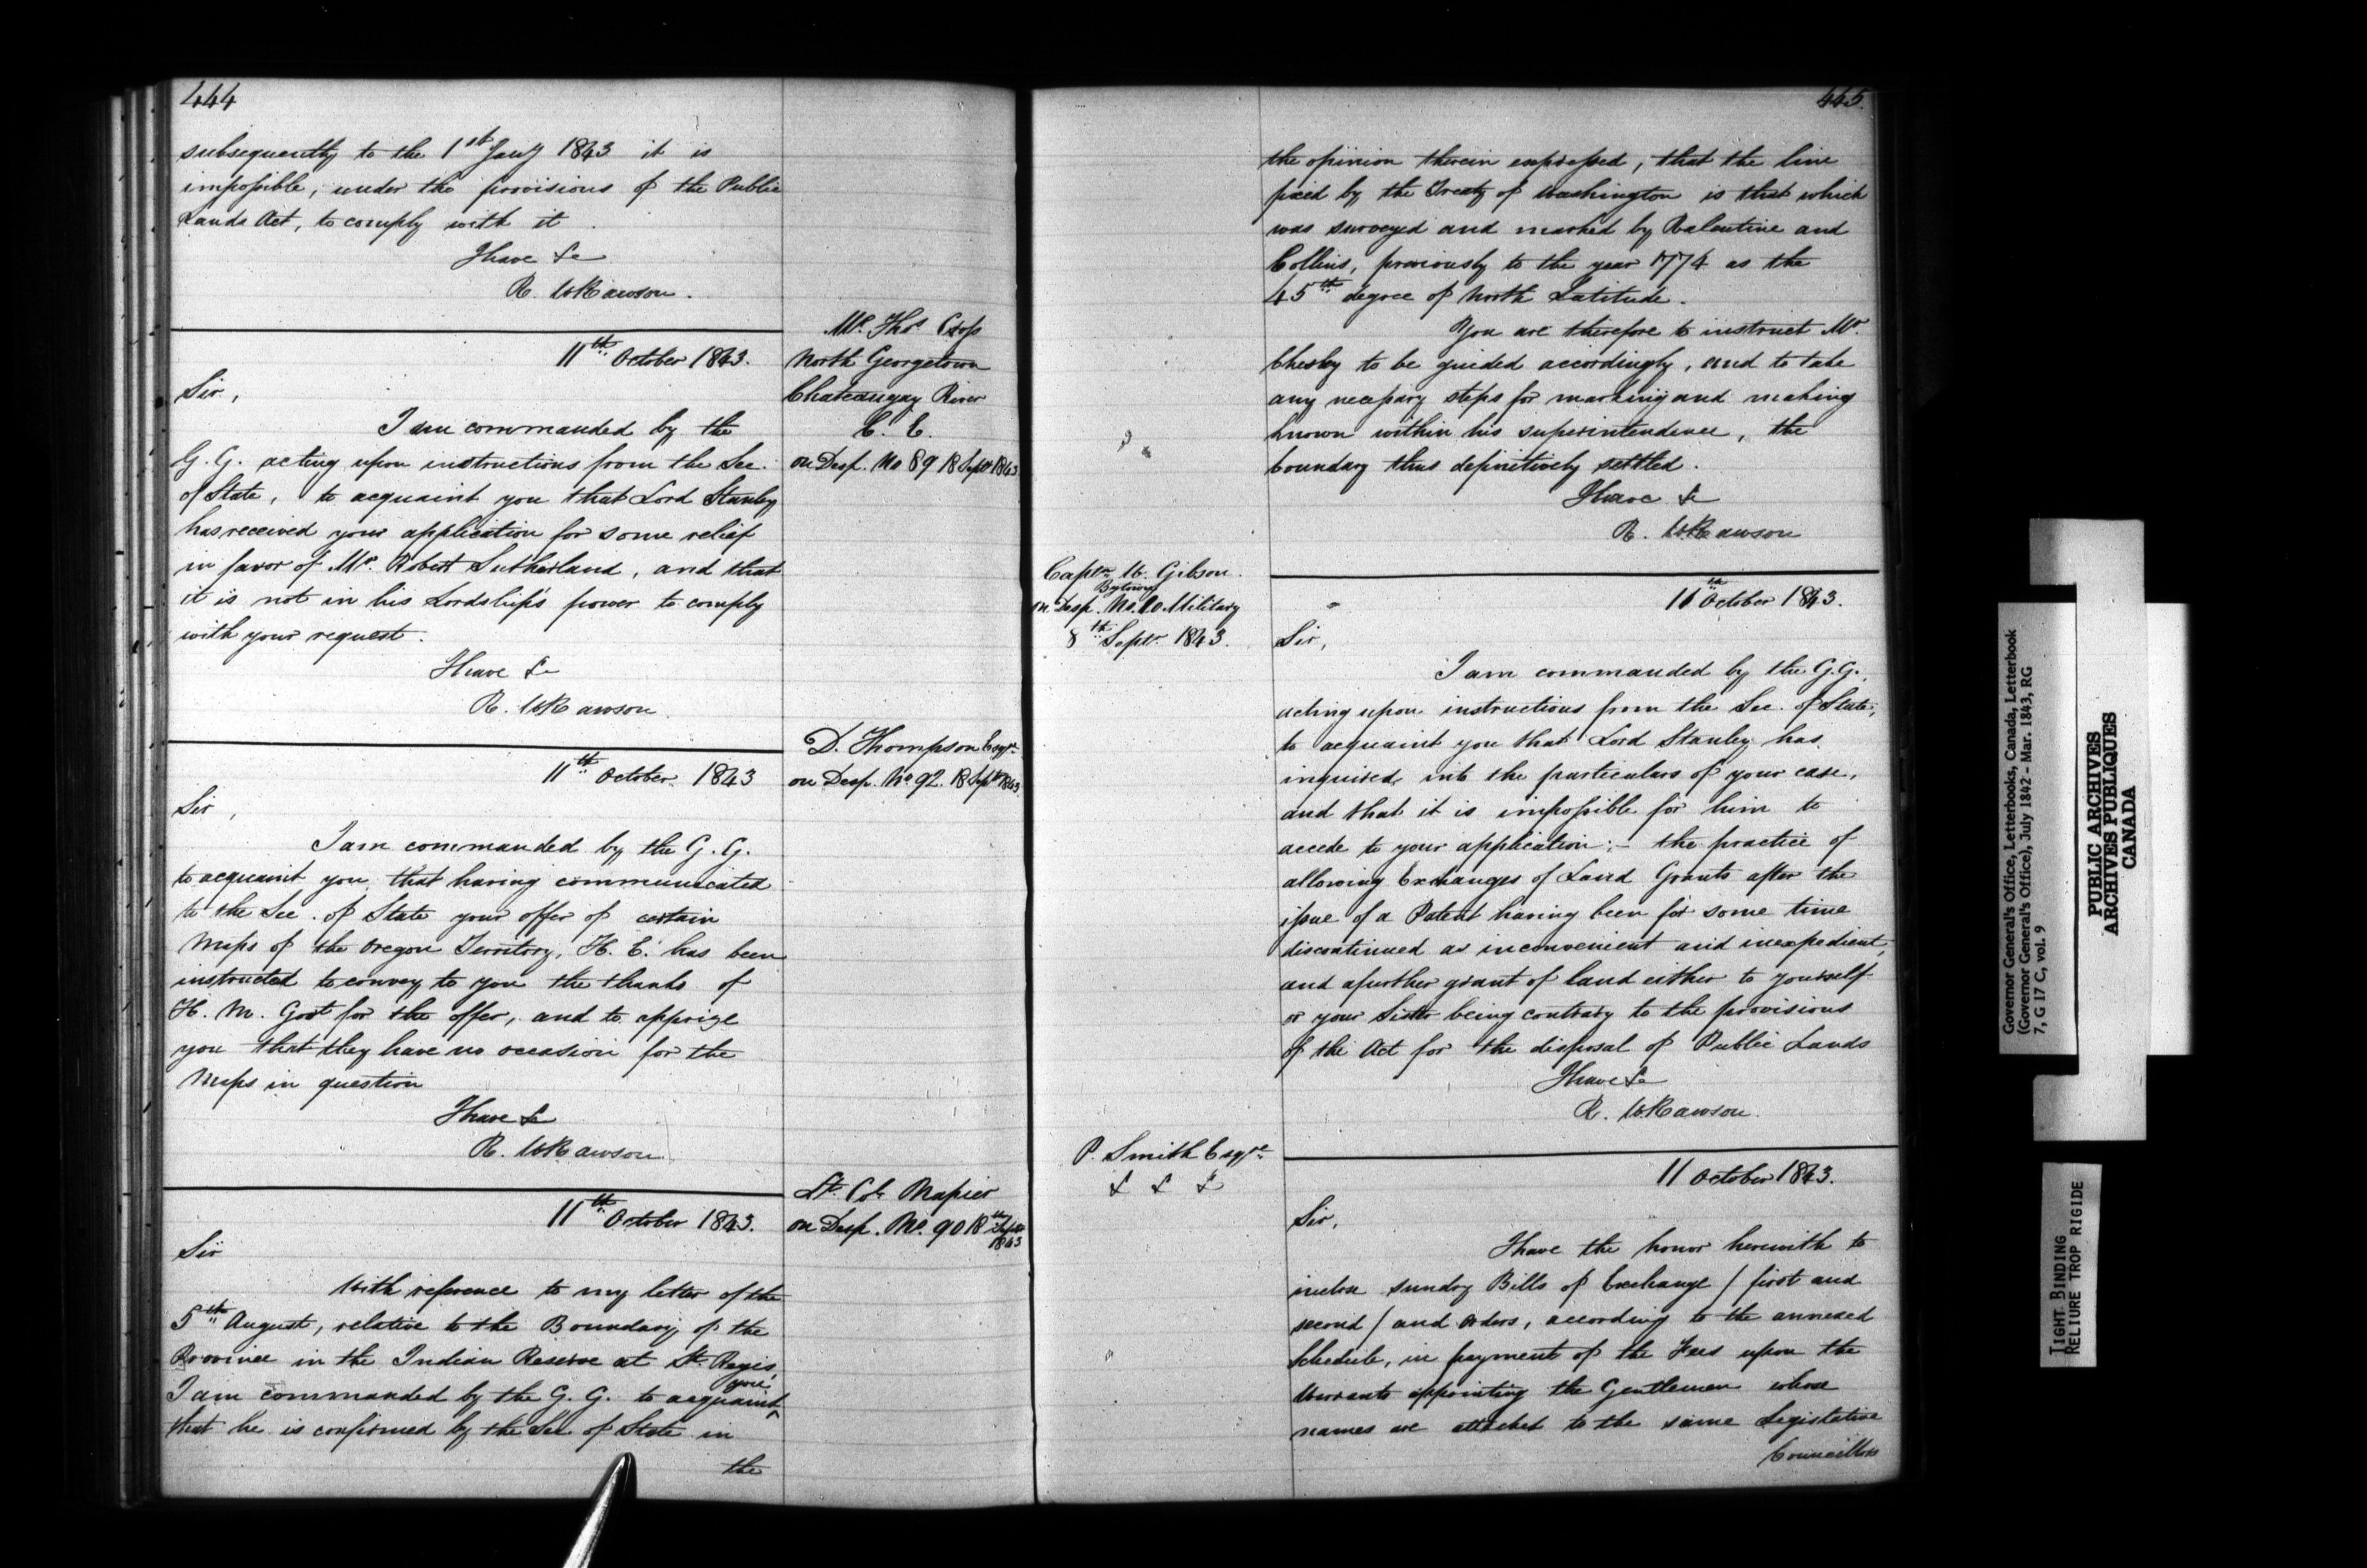 444
subsequently to the 1st Jany 1843 it is
impossible, under the provisions of the Public
Lands Act, to comply with it
I have &c
R. W Rawson.
Mr. Thos
North Georgetown
Chateaugay River
C. E.
on Desp. No 89 18 Septr 1843
11th October 1843.
Sir,
I am commanded by the
G. G. acting upon instructions from the Sec.
of State, to acquaint you that Lord Stanley
has received your application for some relief
in favor of Mr. Robert Sutherland, and that
it is not in his Lordship's power to comply
with your request.
I have &c
R. W Rawson
D. Thompson Esqre
on Desp. No 92. 18 Sept 1843
11th October 1843
Sir,
I am commanded by the G. G.
to acquaint you, that having communicated
to the Sec. of State your offer of certain
Maps of the Oregon Territory, H. E. has been
instructed to convey to you the thanks of
H. M. Govt for the offer, and to apprize
you that they have no occasion for the
Maps in question
I have &c
R. W Rawson
Lt. Col. Napier
on Desp. No. 90 18th Septr 1843
11th October 1843.
Sir
With reference to my letter of the
5th August, relative to the Boundary of the
Province in the Indian Reserve at St. Regis,
I am commanded by the G. G. to acquaint you
that he is confirmed by the Sec of State in
the
445.
the opinion therein expressed, that the line
fixed by the Treaty of Washington is that which
was surveyed and marked by Valentine and
Collins, previously to the year 1774 as the
45th degree of North Latitude.
You are therefore to instruct Mr.
Chesley to be guided accordingly, and to take
any necessary steps for marking and making
known within his superintendence, the
boundary thus definitively settled.
I have &c
R. W Rawson
Captn W. Gibson.
Bytown
on Desp. No. 20 Military
8th Septr. 1843.
11th October 1843.
Sir,
I am commanded by the G. G.,
acting upon instructions from the Sec. of State,
to acquaint you that Lord Stanley has
inquired into the particulars of your case,
and that it is impossible for him to
accede to your application:- the practice of
allowing Exchanges of Land Grants after the
issue of a Patent having been for some time
discontinued as inconvenient and inexpedient,
and a further grant of land either to yourself
or your Sister being contrary to the provisions
of the Act for the disposal of Public Lands
I have &c
R. W Rawson.
P. Smith Esqre
& & &
11 October 1843.
Sir,
I have the honor herewith to
inclose sundry Bills of Exchange / first and
second / and orders, according to the annexed
Schedule, in payment of the Fees upon the
Warrants appointing the Gentlemen whose
names are attached to the same Legislative
Councillors
Governor General's Office, Letterbooks, Canada, Letterbook
(Governor General's Office), July 1842 - Mar. 1843, RG
7, G 17 C, vol. 9
PUBLIC ARCHIVES
ARCHIVES PUBLIQUES
CANADA
TIGHT BINDING
RELIURE TROP RIGIDE